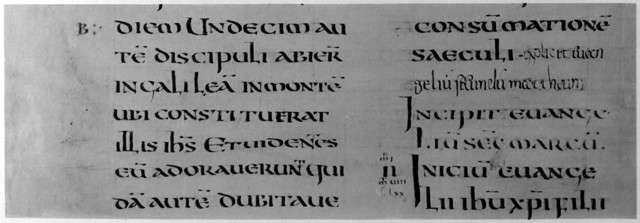 B:
DIEM UNDECIM AU
TĒ DISCIPULI ABIER̄
IN GALILEĀ IN MONTĒ
UBI CONSTITUERAT
ILLIS IH̄S ET UIDENT̄ES
EŪ ADORAUERUNT QUI
DĀ AUTĒ DUBITAUE
CONSŪMATIONĒ
SAECULI explicit euan
geliū
INCIPIT EUANGE
LIŪ SEC̄ MARCŪ.
INICIŪ EUANGE
LII IHŪ XP̄I FILII